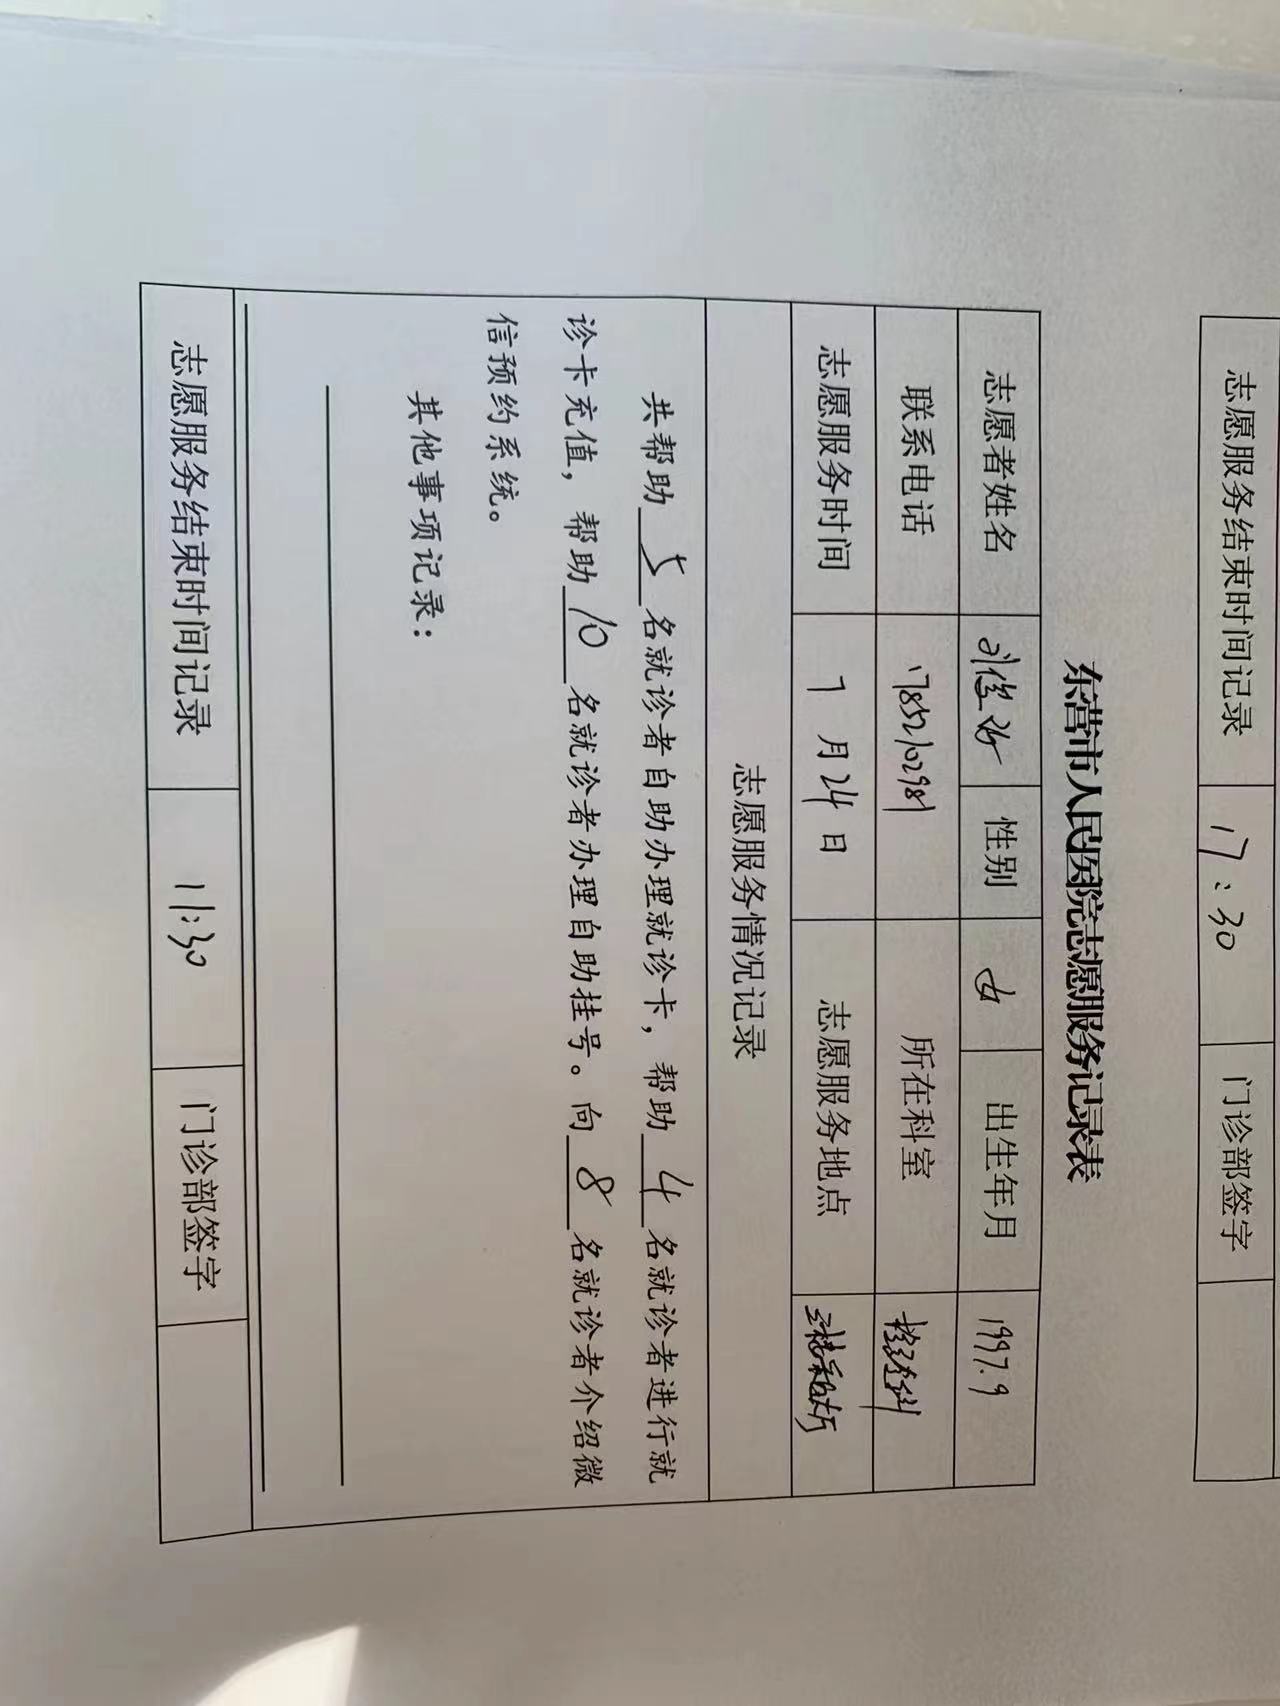 志愿服务结束时间记录 17:30 门诊部签字
东营市人民医院志愿服务记录表
志愿者姓名 性别 女 出生年月 1997.9
联系电话 17852102981 所在科室 检查科
志愿服务时间 7月24日 志愿服务地点
志愿服务情况记录
共帮助5名就诊者自助办理就诊卡，帮助4名就诊者进行就
诊卡充值，帮助10名就诊者办理自助挂号。向8名就诊者介绍微
信预约系统。
其他事项记录：
志愿服务结束时间记录 11:30 门诊部签字